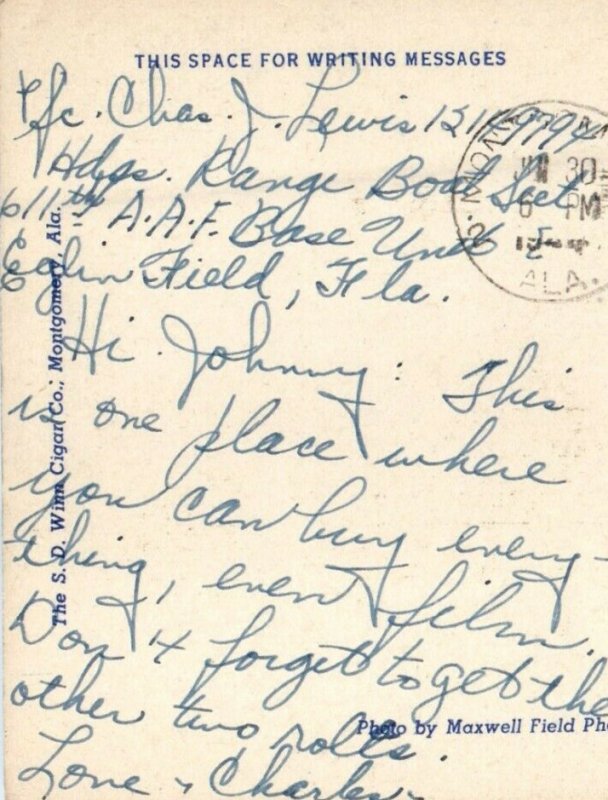 THIS SPACE FOR WRITING MESSAGES
Pfc. Chas. J. Lewis
Hdqs. Range Boat Sect.
611th A.A.F. Base Unit
Eglin Field, Fla.
Hi Johnny: This
is one place where
you can buy every-
thing, even film.
Don't forget to get the
other two rolls.
Love, Charles
The S. D. Winn Cigar Co., Montgomery, Ala.
Photo by Maxwell Field Pho
JUN 30
6 PM
ALA.